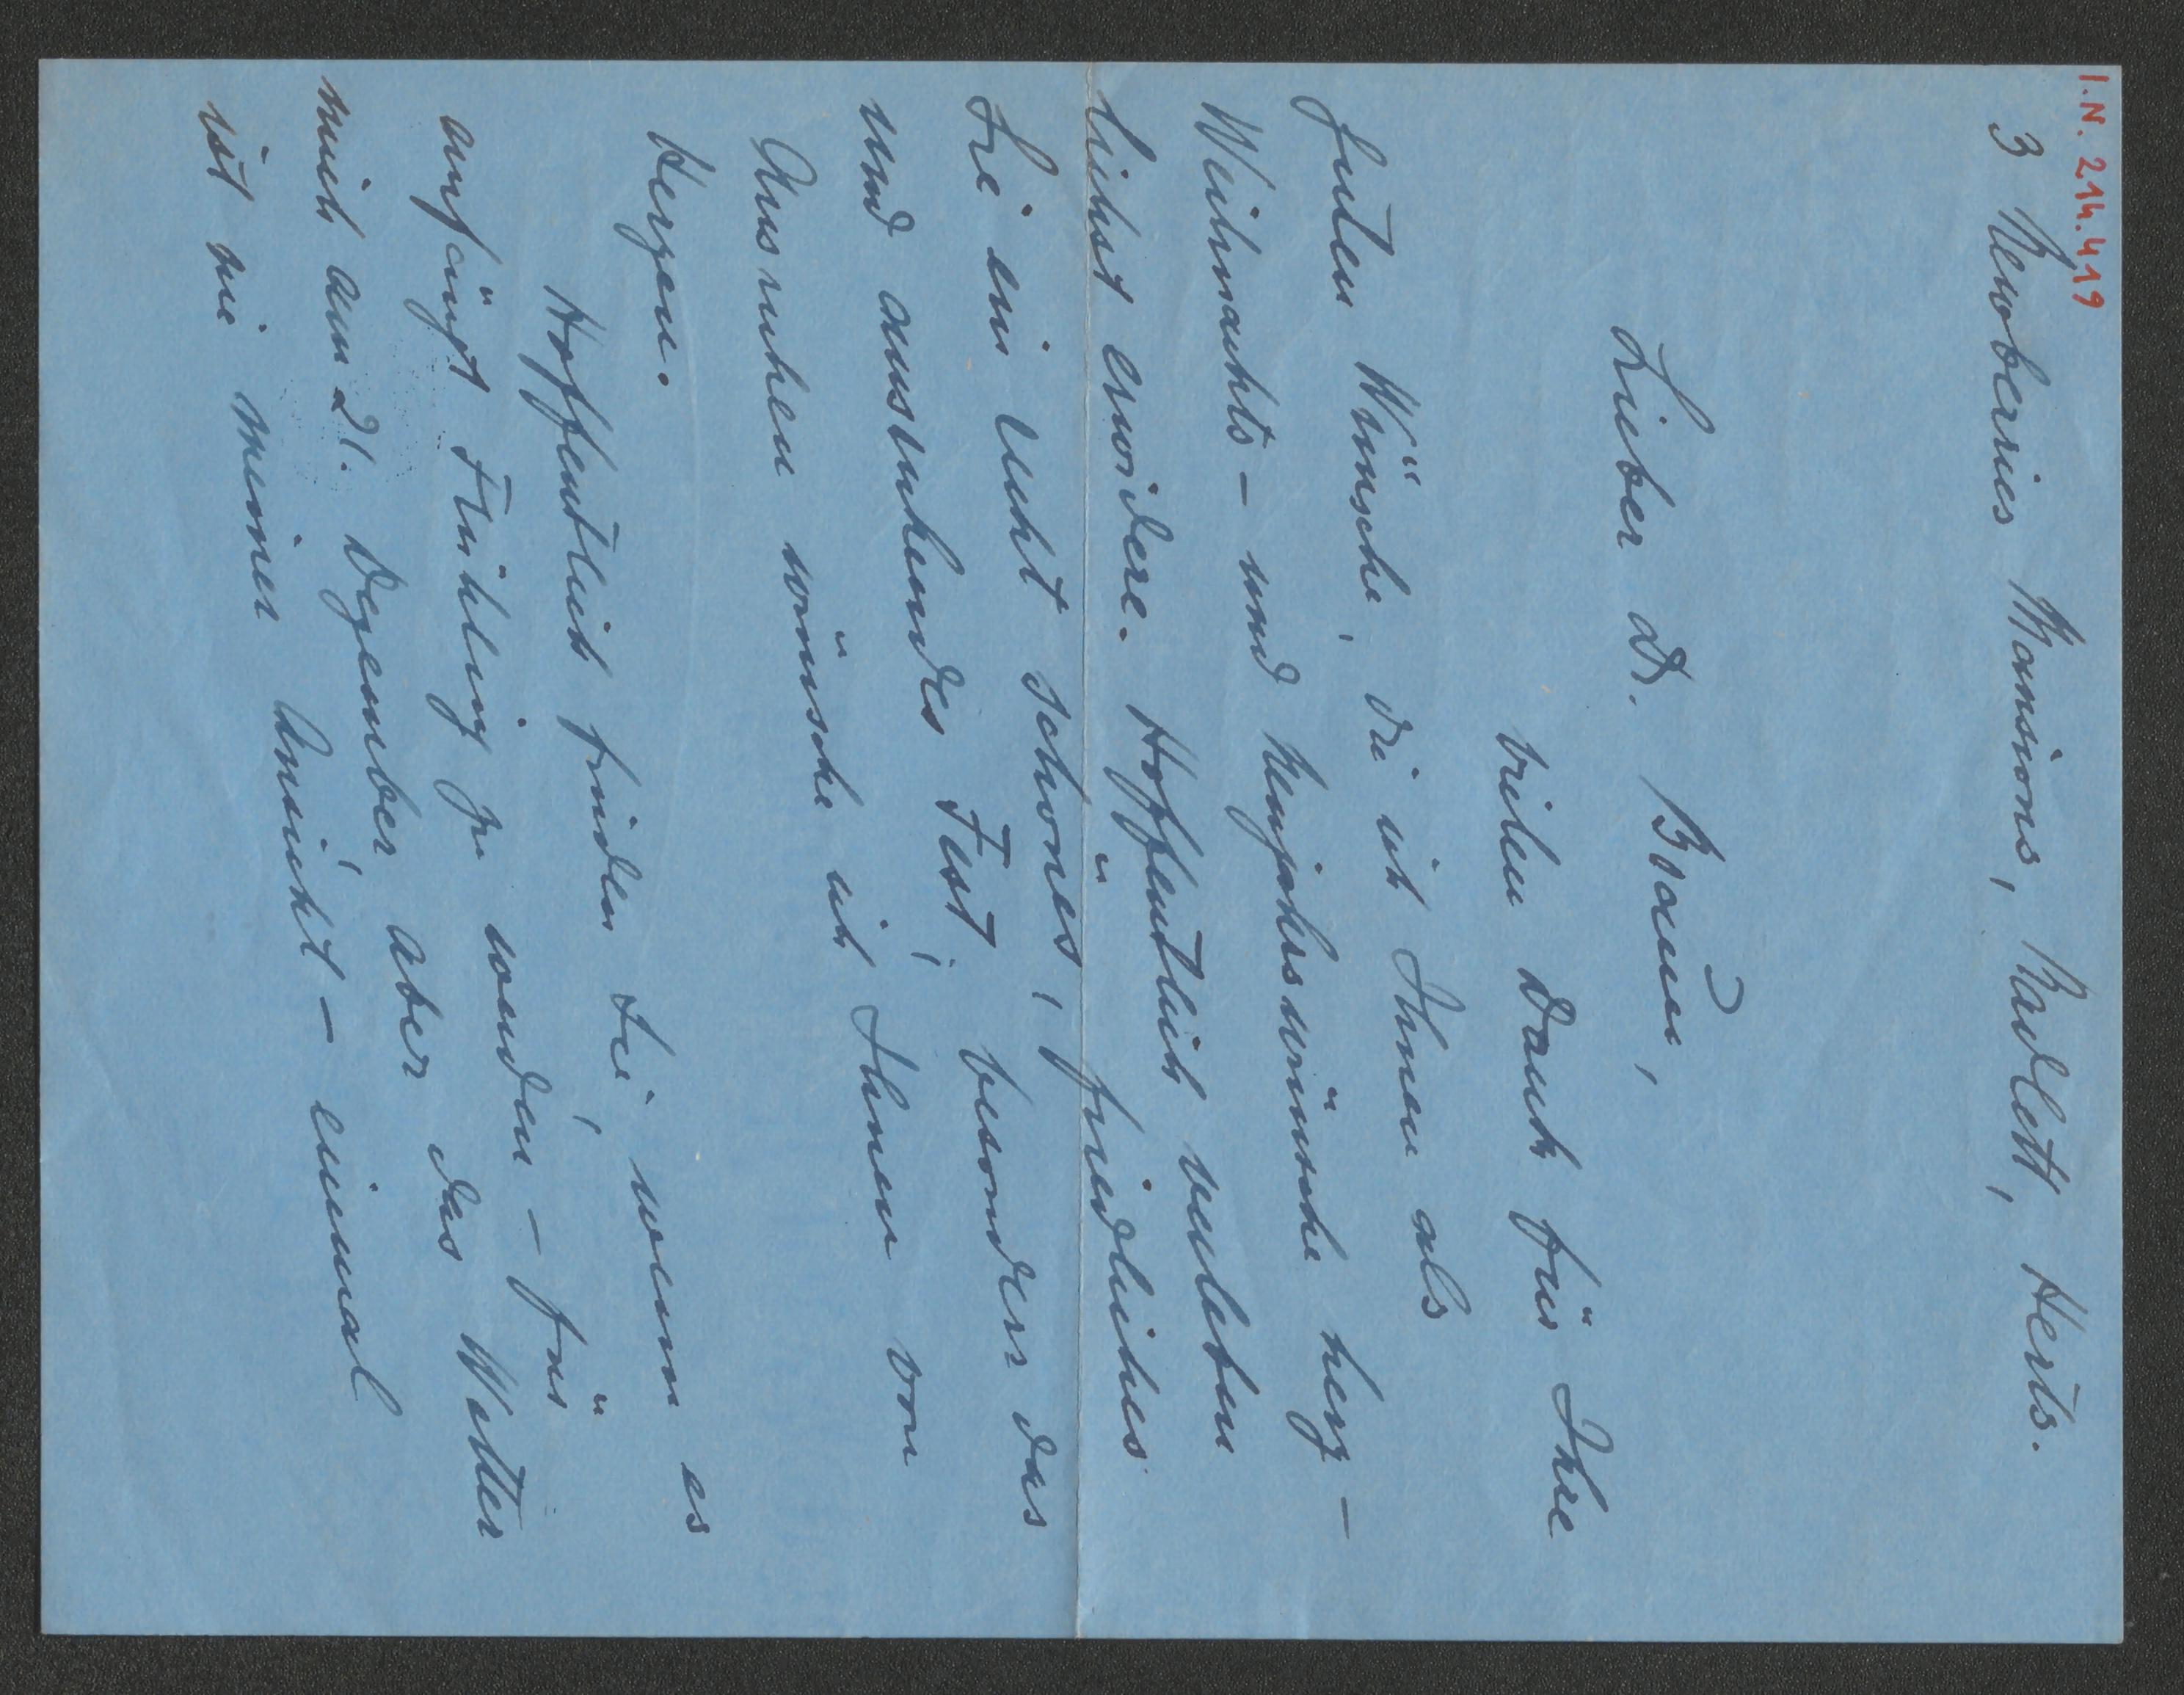 I.N. 214.419
3 Newberries Mansions, Radlett, Herts.
Lieber Dr. Braun,
vielen Dank für Ihre
guten Wünsche, die ich Ihnen als
Weihnachts- und Neujahrswünsche herz-
lichst erwidere. Hoffentlich verleben
Sie ein recht schönes, friedliches
und ausruhendes Fest; besonders das
Ausruhen wünsche ich Ihnen von
Herzen.
Hoffentlich finden Sie, wenn es
anfängt Frühling zu werden – für
mich am 21. Dezember, aber das Wetter
ist nie meiner Ansicht – einmal